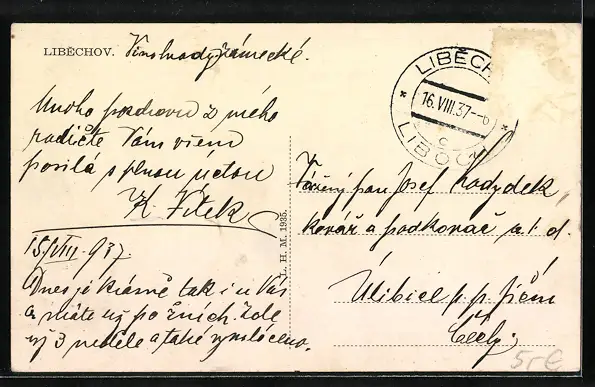 LIBĚCHOV. Vinohrady zámecké.
Mnoho pozdravů z mého
radiště Vám všem
posílá s plnou úctou
K. Vítek
15/VIII 937.
Dnes je krásně tak i u Vás
a máte už po žních. Zde
už 3 neděle a také vymláceno.
L. H. M. 1935.
LIBĚCH
16.VIII.37--6
c
LIBOCH
Vážený pan Josef
kovář a podkovář a.t.d.
Úlibice p. p. Jičín
Čechy.
5,- €